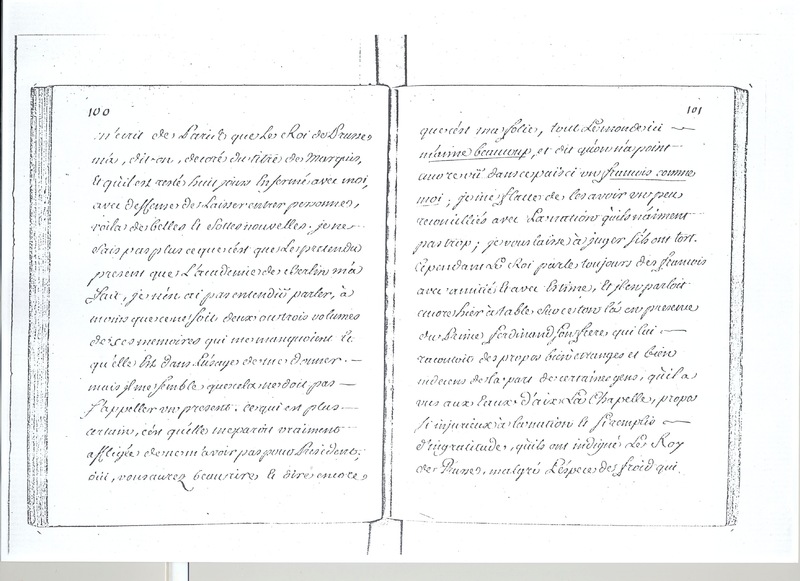 100
m'ecrit de Paris que Le Roi de Prusse
m'a, dit-on, decoré du titre de Marquis,
Et qu'il est resté huit jours Enfermé avec moi,
avec deffense de Laisser entrer personne,
voila de belles Et sottes nouvelles. je ne
sais pas plus ce que c'est que Le pretendu
present que L'academie de Berlin m'a
fait, je n'en ai pas entendü parler, à
moins que ce ne soit deux ou trois volumes
de ses memoires qui me manquoient Et
qu'elle Est dans L'usage de me donner. —
mais il me semble que cela ne doit pas —
s'appeller un present. ce qui est plus —
certain, c'est qu'elle me paroît vraiment
affligée de ne m'avoir pas pour Président;
oüi, vous aurez beau rire Et dire encore,
101
que c'est ma folie, tout Le monde ici —
m'aime beaucoup, et dit qu'on n'a point
encore vü dans ce païs ci un francois comme
moi; je me flatte de les avoir un peu
reconciliés avec La nation qu'ils n'aiment
pas trop; je vous laisse à juger s'ils ont tort.
Cependant Le Roi parle toujours des francois
avec amitié Et avec Estime, Et il en parloit
encore hier à table sur ce ton là en presence
du Prince ferdinand son frere qui lui —
racontoit des propos bien etranges et bien
indecens de la part de certaines gens, qu'il a
vus aux Eaux d'aix La Chapelle, propos
si injurieux à la nation Et si remplis —
d'ingratitude, qu'ils ont indigné Le Roy
de Prusse, malgré L'espece de froid qui